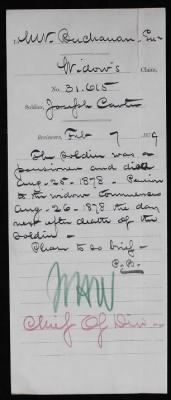 M.V. Buchanan, Ex.
Widow's Claim,
No. 31.615
Soldier, Joseph Carter
Reviewers, Feb 7 1879
The soldier was a
pensioner and died
Aug-25-1878. Pension
to the widow commences
Aug-26-1878 the day
next after death of the
soldier-
Please to so brief-
C.R.
WAW
Chief Of Div